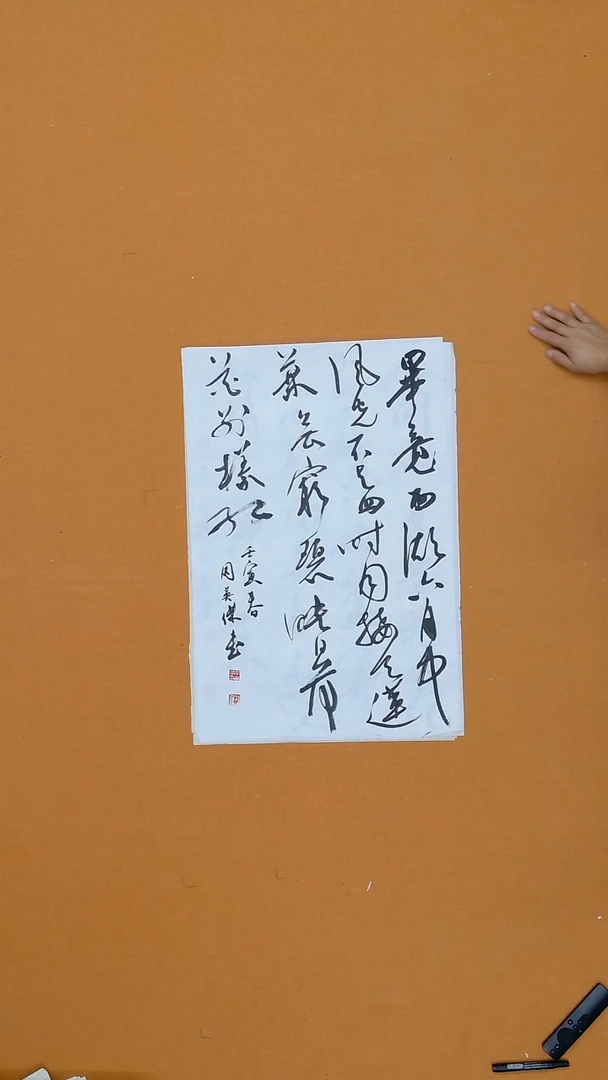 畢竟西湖六月中
風光不与四時同接天蓮
葉無窮碧映日荷
花別樣紅
壬寅春
周英傑書